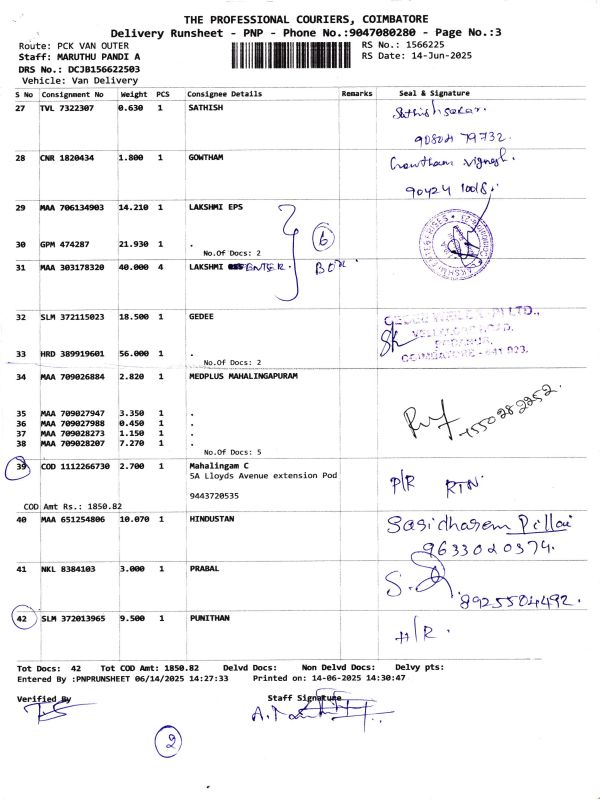 THE PROFESSIONAL COURIERS, COIMBATORE
Delivery Runsheet - PNP - Phone No.:9047080280 - Page No.:3
Route: PCK VAN OUTER
RS No.: 1566225
Staff: MARUTHU PANDI A
RS Date: 14-Jun-2025
DRS No.: DCJB156622503
Vehicle: Van Delivery
S No Consignment No Weight PCS Consignee Details Remarks Seal & Signature
27 TVL 7322307 0.630 1 SATHISH
90804 79732.
28 CNR 1820434 1.800 1 GOWTHAM Gowtham Vignesh.
90424 10018.
29 MAA 706134903 14.210 1 LAKSHMI EPS
30 GPM 474287 21.930 1 .
No.Of Docs: 2
6
31 MAA 303178320 40.000 4 LAKSHMI ENTER. Box
32 SLM 372115023 18.500 1 GEDEE
LTD.,
VELLALORE ROAD,
PODANUR,
COIMBATORE - 641 023.
33 HRD 389919601 56.000 1 .
No.Of Docs: 2
34 MAA 709026884 2.820 1 MEDPLUS MAHALINGAPURAM
35 MAA 709027947 3.350 1 .
36 MAA 709027988 0.450 1 .
37 MAA 709028273 1.150 1 .
38 MAA 709028207 7.270 1 .
No.Of Docs: 5
39 COD 1112266730 2.700 1 Mahalingam C
5A Lloyds Avenue extension Pod
P/R RTN
9443720535
COD Amt Rs.: 1850.82
40 MAA 651254806 10.070 1 HINDUSTAN Sasidharem Pillai
9633020374.
41 NKL 8384103 3.000 1 PRABAL
8925504492.
42 SLM 372013965 9.500 1 PUNITHAN H/R.
Tot Docs: 42 Tot COD Amt: 1850.82 Delvd Docs: Non Delvd Docs: Delvy pts:
Entered By :PNPRUNSHEET 06/14/2025 14:27:33 Printed on: 14-06-2025 14:30:47
Verified By Staff Signature
2